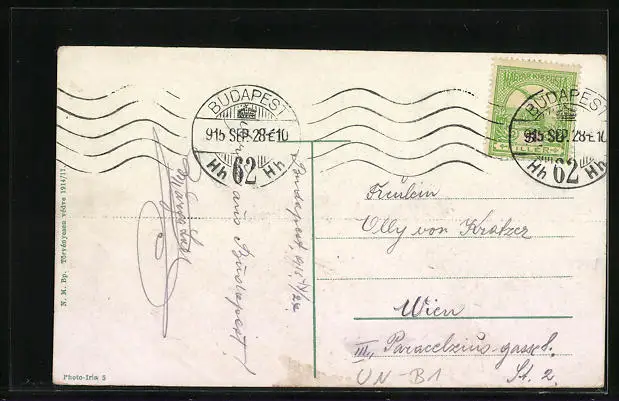 BUDAPEST
915 SEP 28 E 10
Hh 62 Hh
MAGYAR KIR. POSTA
FILLÉR
BUDAPEST
915 SEP 28 E 10
Hh 62 Hh
Budapest, 915
aus Budapest!
Freulein
Olly von Kratzer
Wien
III/4 Paracelzius-gasse 8.
St. 2.
UN-B1
N. M. Bp. Törvényesen védve 1914/17
Photo-Iris 5